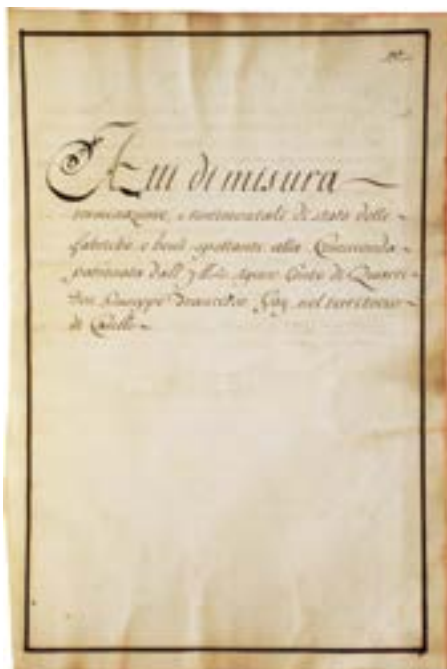 Atti di misura
terminazione, e testimoniali di stato delle
fabriche e beni spettanti alla Commenda
patronata dall' Ill.mo Signor Conte di Quarti
Don Giuseppe Francesco Gay nel territorio
di